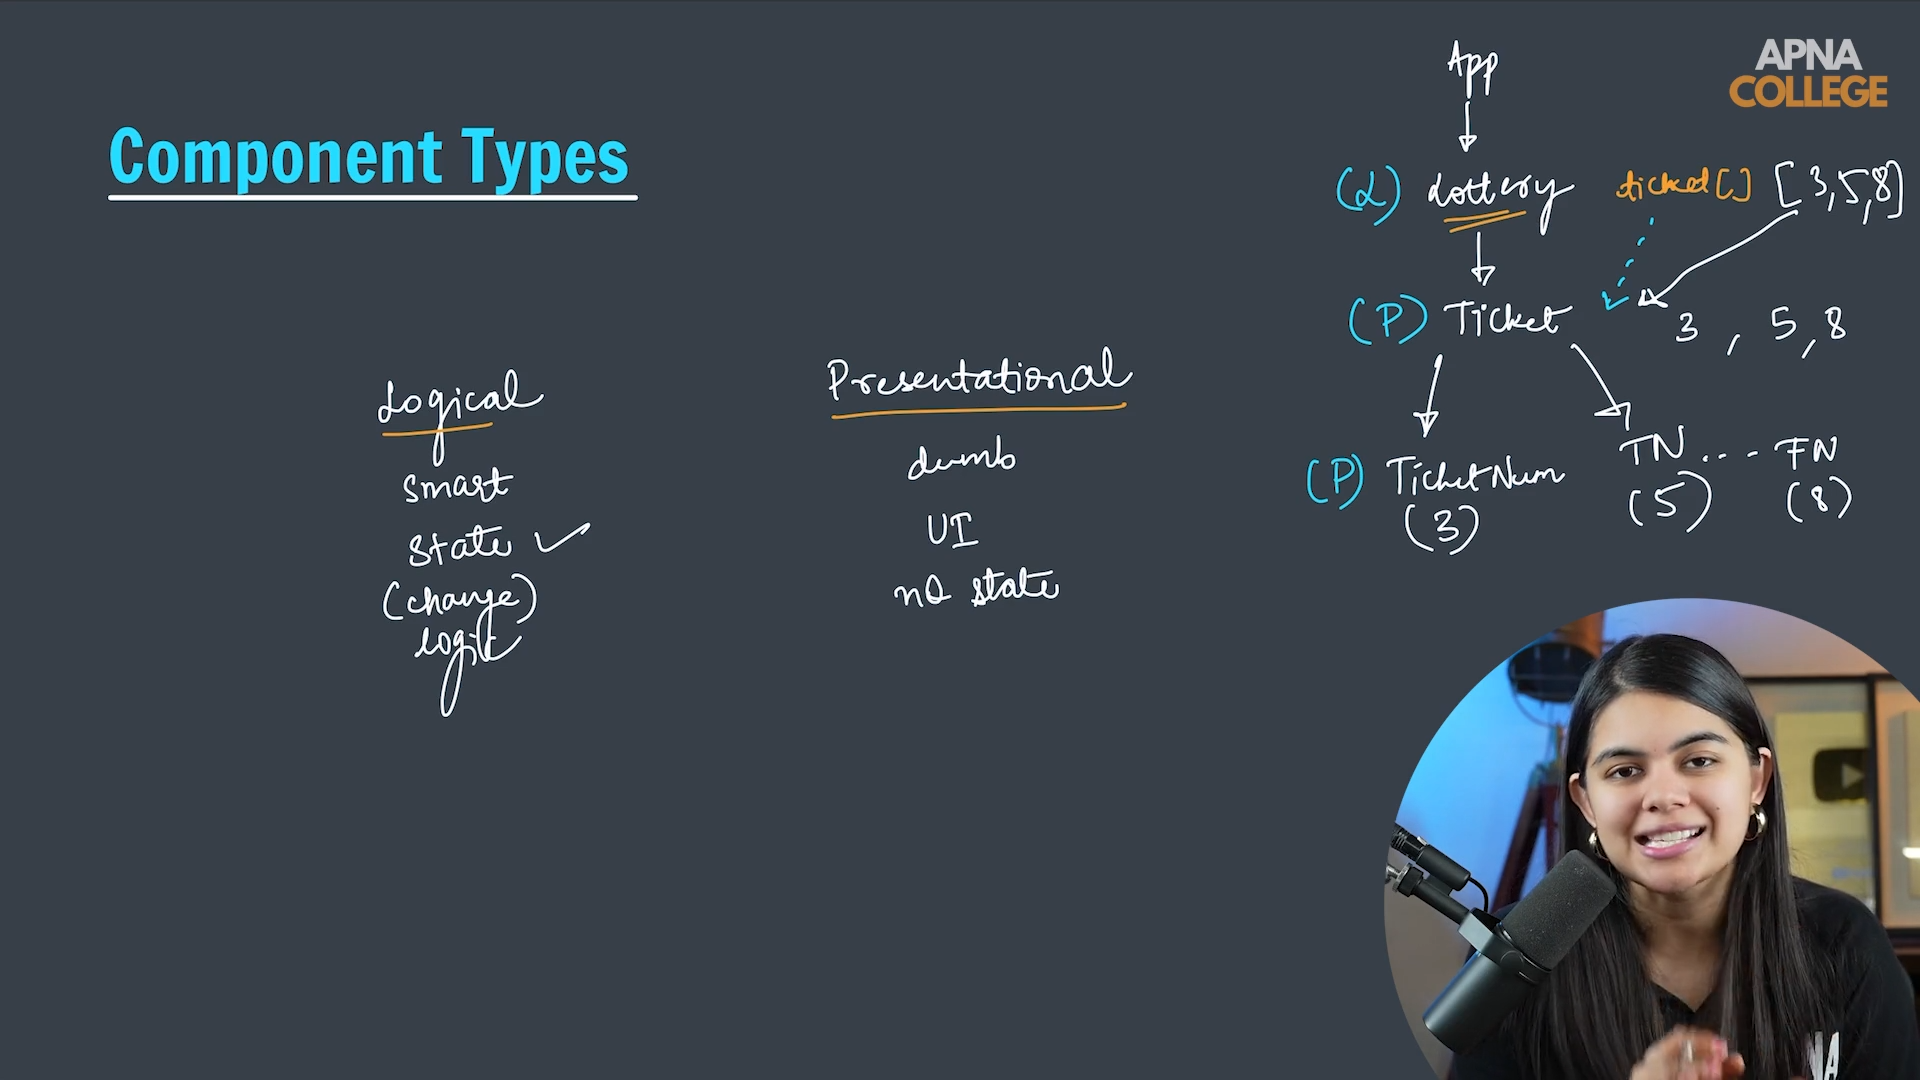 Component Types
Logical
smart
state ✓
(change)
logic
Presentational
dumb
UI
no state
App
(L) Lottery ticket[] [3,5,8]
(P) Ticket 3 , 5,8
(P) TicketNum TN .... TN
(3) (5) (8)
APNA
COLLEGE